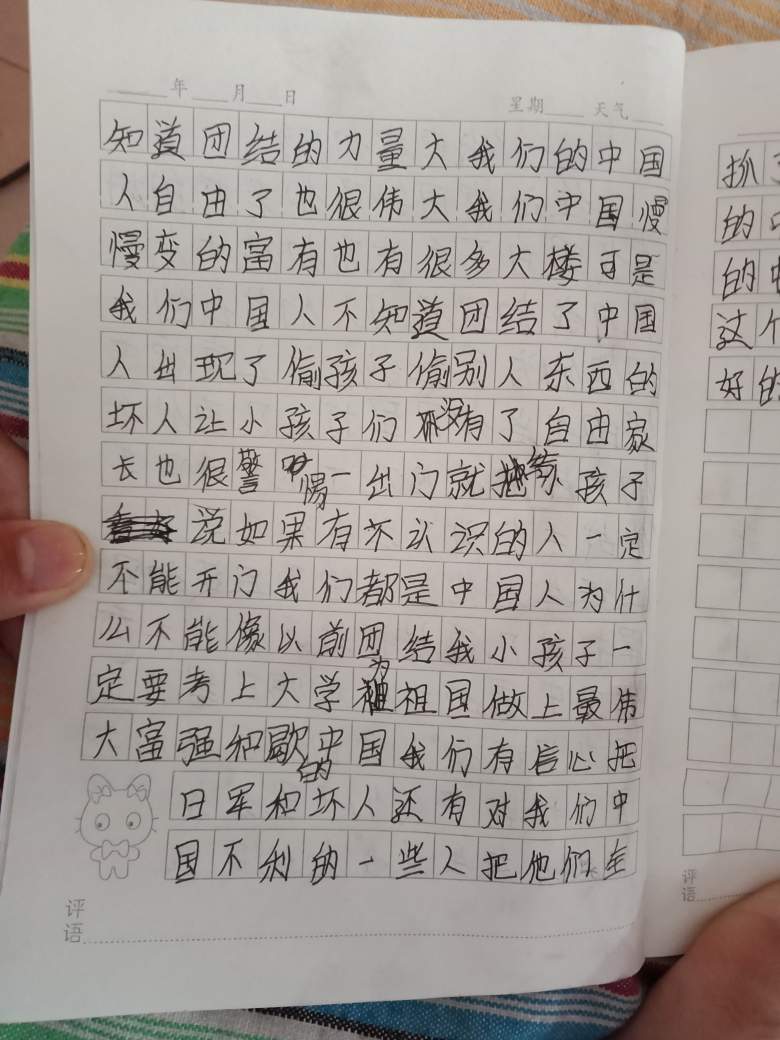 年 月 日 星期 天气
知道团结的力量大我们的中国
人自由了也很伟大我们中国慢
慢变的富有也有很多大楼可是
我们中国人不知道团结了中国
人出现了偷孩子偷别人东西的
坏人让小孩子们没有了自由家
长也很警惕一出门就给小孩子
说如果有不认识的人一定
不能开门我们都是中国人为什
么不能像以前团结我小孩子一
定要考上大学为祖国做上最伟
大富强和的中国我们有信心把
日军和坏人还有对我们中
国不利的一些人把他们全
评语
抓
的
的
这个
好的
评语